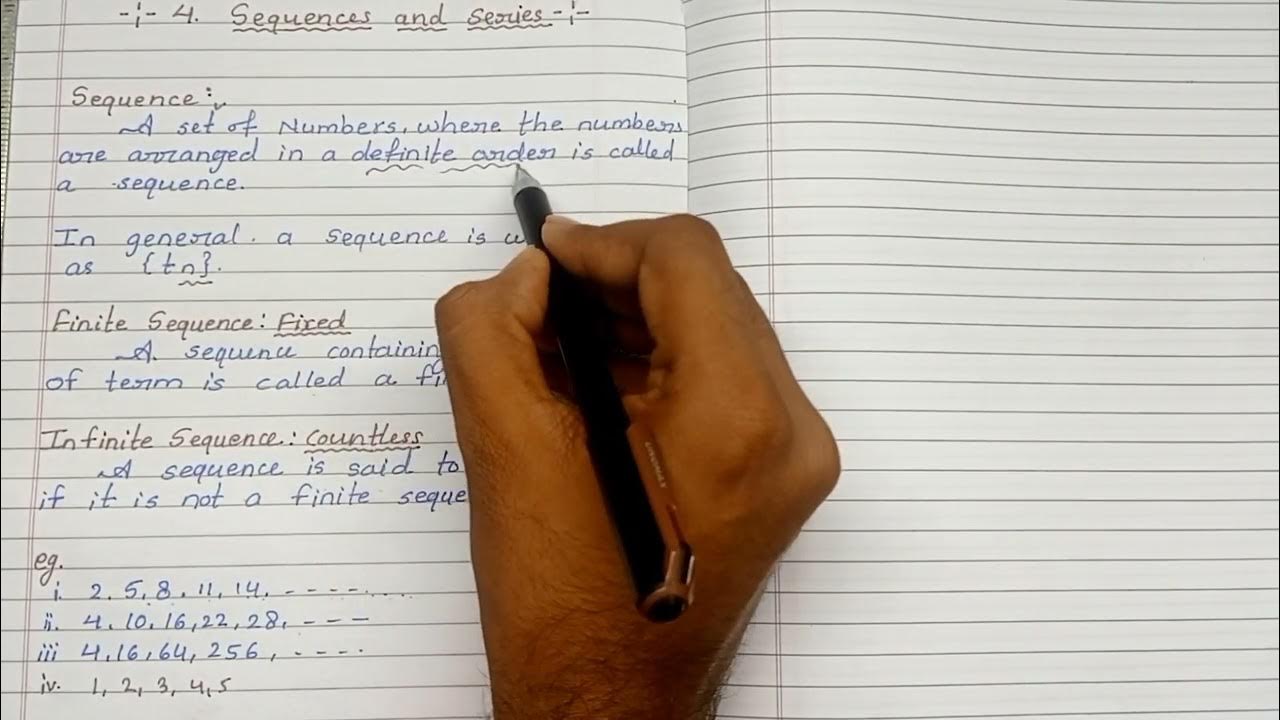 -¦- 4. Sequences and Series -¦-
Sequence:
A set of Numbers, where the numbers
are arranged in a definite order is called
a sequence.
In general. a sequence is
as {tn}.
Finite Sequence: Fixed
A sequence containin
of term is called a fi
Infinite Sequence: Countless
A sequence is said to
if it is not a finite seque
eg.
i. 2, 5, 8, 11, 14, - - - - - . . . .
ii. 4, 10, 16, 22, 28, - - -
iii 4, 16, 64, 256, - - - -
iv. 1, 2, 3, 4, 5